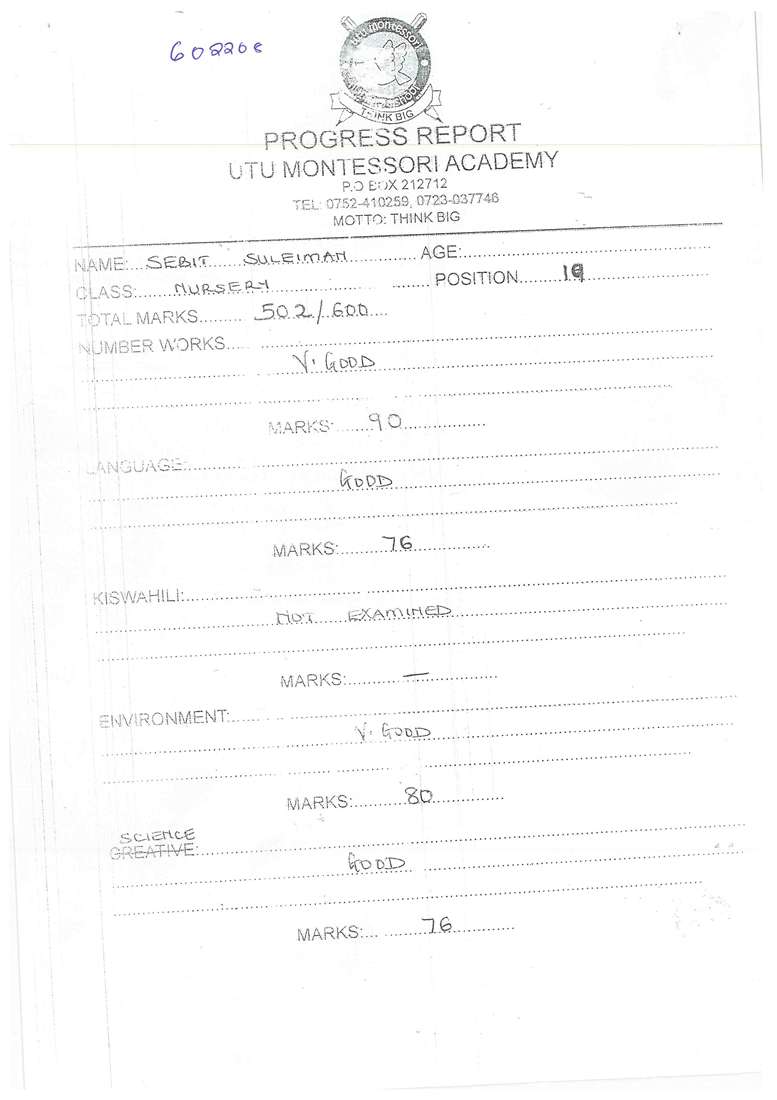 602208
utu montessori
THINK BIG
PROGRESS REPORT
UTU MONTESSORI ACADEMY
P.O BOX 212712
TEL: 0752-410259, 0723-037746
MOTTO: THINK BIG
NAME: SEBIT SULEIMAN AGE:
CLASS: NURSERY POSITION 19
TOTAL MARKS 502/600
NUMBER WORKS
V. GOOD
MARKS: 90
LANGUAGE:
GOOD
MARKS: 76
KISWAHILI:
NOT EXAMINED
MARKS: —
ENVIRONMENT:
V. GOOD
MARKS: 80
SCIENCE
CREATIVE:
GOOD
MARKS: 76